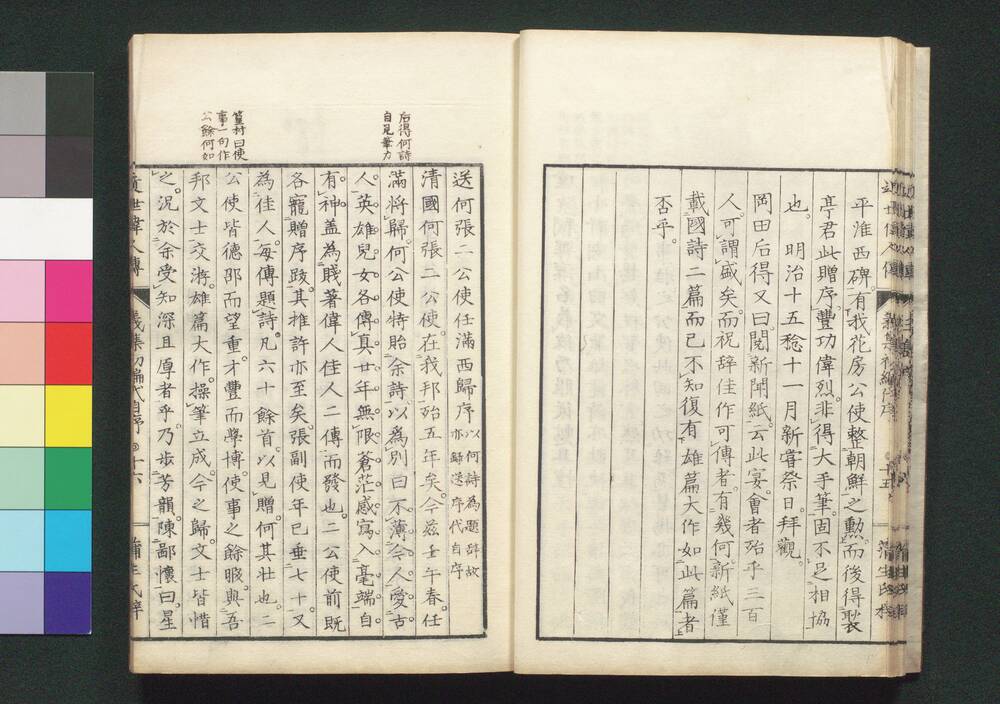 平淮西碑。有我花房公使整朝鮮之勲。而後得裂
亭君此贈序。豐功偉烈。非得大手筆。固不足相協
也。明治十五稔十一月新嘗祭日。拜觀。
岡田后得又曰。閱新聞紙。云此宴會者殆乎三百
人。可謂盛矣。而祝辞佳作可傳者。有幾何。新紙僅
載國詩二篇而已。不知復有雄篇大作如此篇者
否乎。
后得何詩
自見筆力
篁村曰使
事一句作
公餘何如
送何張二公使任滿西歸序以何詩為題辞故
亦歸送序代自序
清國何張二公使。在我邦殆五年矣。今茲壬午春。任
滿將歸。何公使特貽余詩。以為別曰。不薄今人愛古
人。英雄兒女各傳真。廿年無限蒼茫感。寫入毫端自
有神。盖為賎著偉人佳人二傳而發也。二公使前既
各寵贈序跋。其推許亦至矣。張副使年已垂七十。又
為佳人每傳題詩。凡六十餘首。以見贈。何其壯也。二
公使皆德卲而望重。才豐而學博。使事之餘暇。與吾
邦文士交游。雄篇大作。操筆立成。今之歸。文士皆惜
之。況於余受知深且厚者乎。乃步芳韻陳鄙懷曰。星
近世偉人傳
義集初編代自序
十六
蒲生氏梓